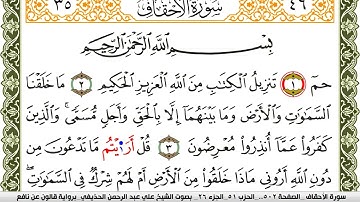 ٣٥ سورة الأحقاف ٤٦
بِسْمِ اللَّهِ الرَّحْمَٰنِ الرَّحِيمِ
حمٓ ١ تَنزِيلُ الْكِتَٰبِ مِنَ اللَّهِ الْعَزِيزِ الْحَكِيمِ ٢ مَا خَلَقْنَا
السَّمَٰوَٰتِ وَالْأَرْضَ وَمَا بَيْنَهُمَا إِلَّا بِالْحَقِّ وَأَجَلٍ مُّسَمًّى وَالَّذِينَ
كَفَرُوا عَمَّا أُنذِرُوا مُعْرِضُونَ ٣ قُلْ أَرَٰيْتُم مَّا تَدْعُونَ مِن
دُونِ اللَّهِ أَرُونِي مَاذَا خَلَقُوا مِنَ الْأَرْضِ أَمْ لَهُمْ شِرْكٌ فِي السَّمَٰوَٰتِ
سورة الأحقاف الصفحة ٥٠٢.. الحزب ٥١ الجزء ٢٦.. بصوت الشيخ علي عبد الرحمن الحذيفي برواية قالون عن نافع